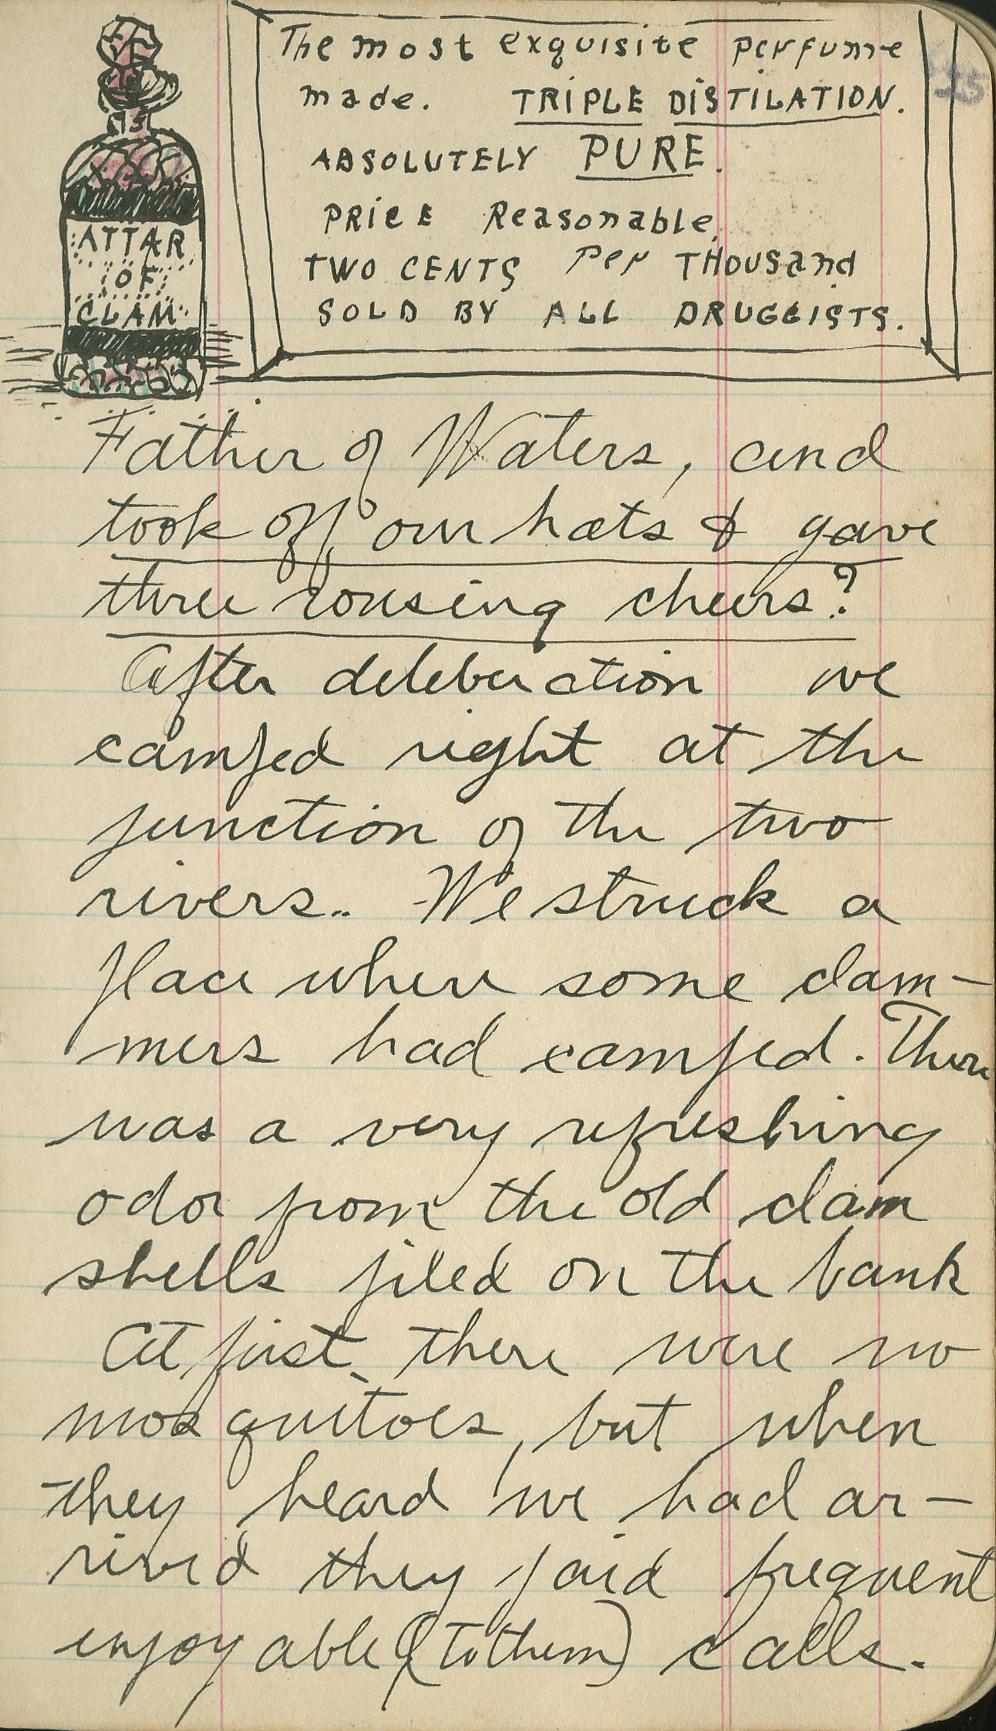 The most exquisite perfume
made. TRIPLE DISTILATION.
ABSOLUTELY PURE.
PRICE Reasonable.
TWO CENTS Per THOUSand
SOLD BY ALL DRUGGISTS.
25
ATTAR
OF
CLAM
Father of Waters, and
took off our hats & gave
three rousing cheers?
After deleberation we
camped right at the
junction of the two
rivers.. We struck a
place where some clam-
mers had camped. There
was a very refreshing
odor from the old clam
shells piled on the bank
At first there were no
mosquitoes, but when
they heard we had ar-
rived they paid frequent
enjoyable (to them) calls.